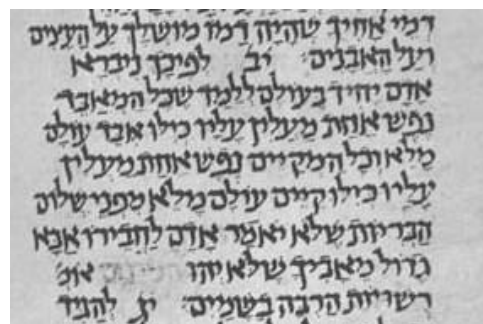 דמי אחיך שהיה דמו מושלך על העצים
ועל האבנים: יב לפיכך ניברא
אדם יחיד בעולם ללמד שכל המאבד
נפש אחת מעלין עליו כילו אבד עולם
מלא וכל המקיים נפש אחת מעלין
עליו כילו קיים עולם מלא מפני שלום
הבריות שלא יאמר אדם לחבירו אבא
גדול מאביך שלא יהו אומ'
רשויות הרבה בשמים: יג להגיד